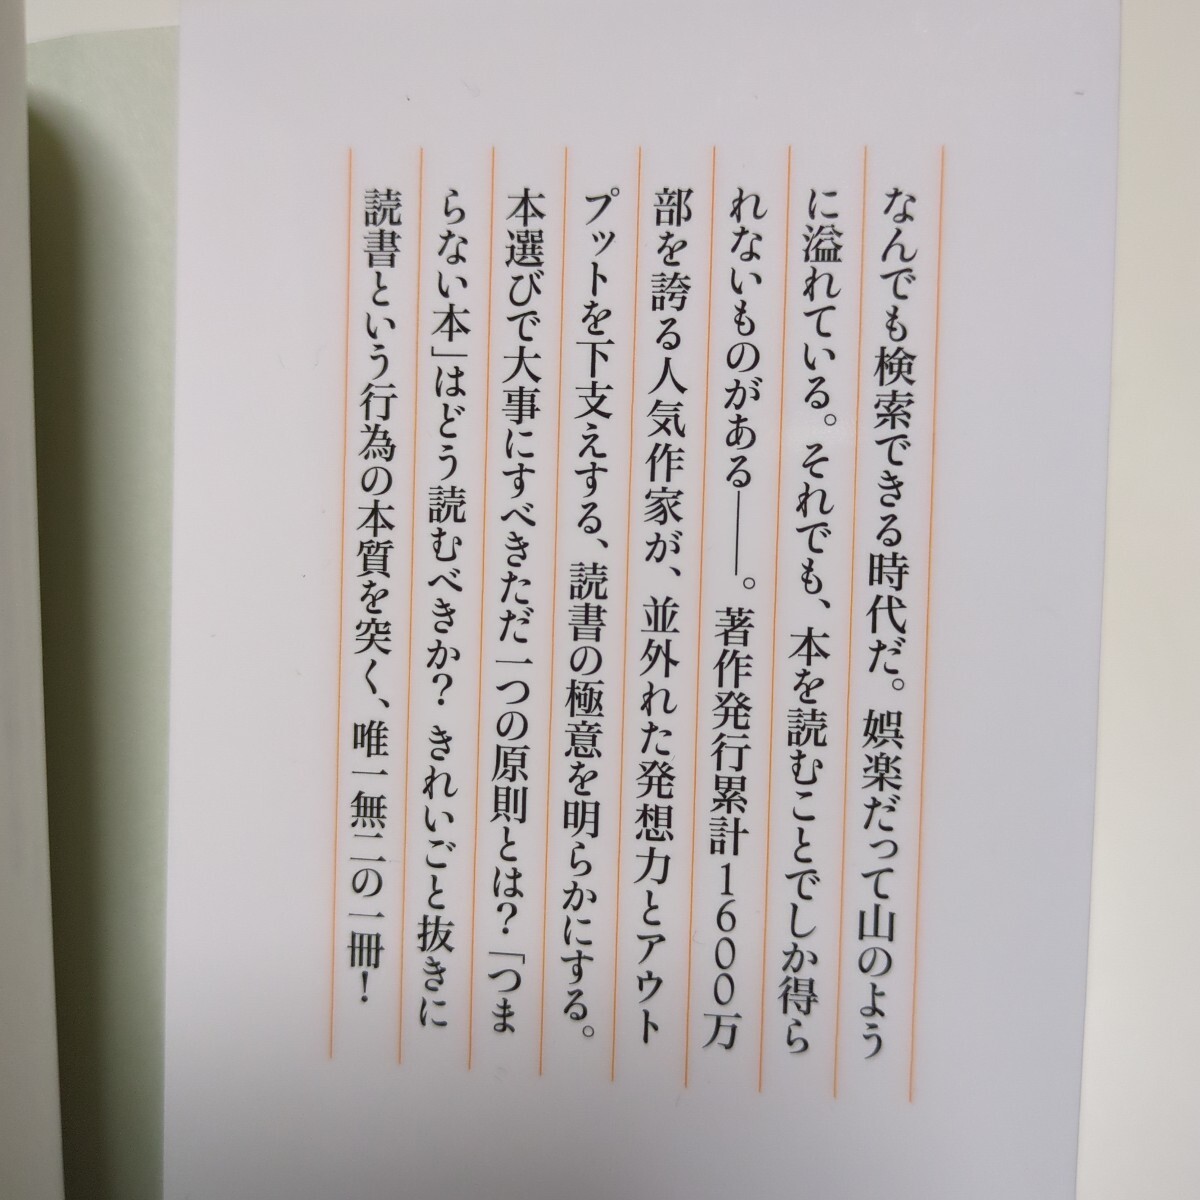 なんでも検索できる時代だ。娯楽だって山のよう
に溢れている。それでも、本を読むことでしか得ら
れないものがある――。著作発行累計1600万
部を誇る人気作家が、並外れた発想力とアウト
プットを下支えする、読書の極意を明らかにする。
本選びで大事にすべきただ一つの原則とは？「つま
らない本」はどう読むべきか？きれいごと抜きに
読書という行為の本質を突く、唯一無二の一冊！